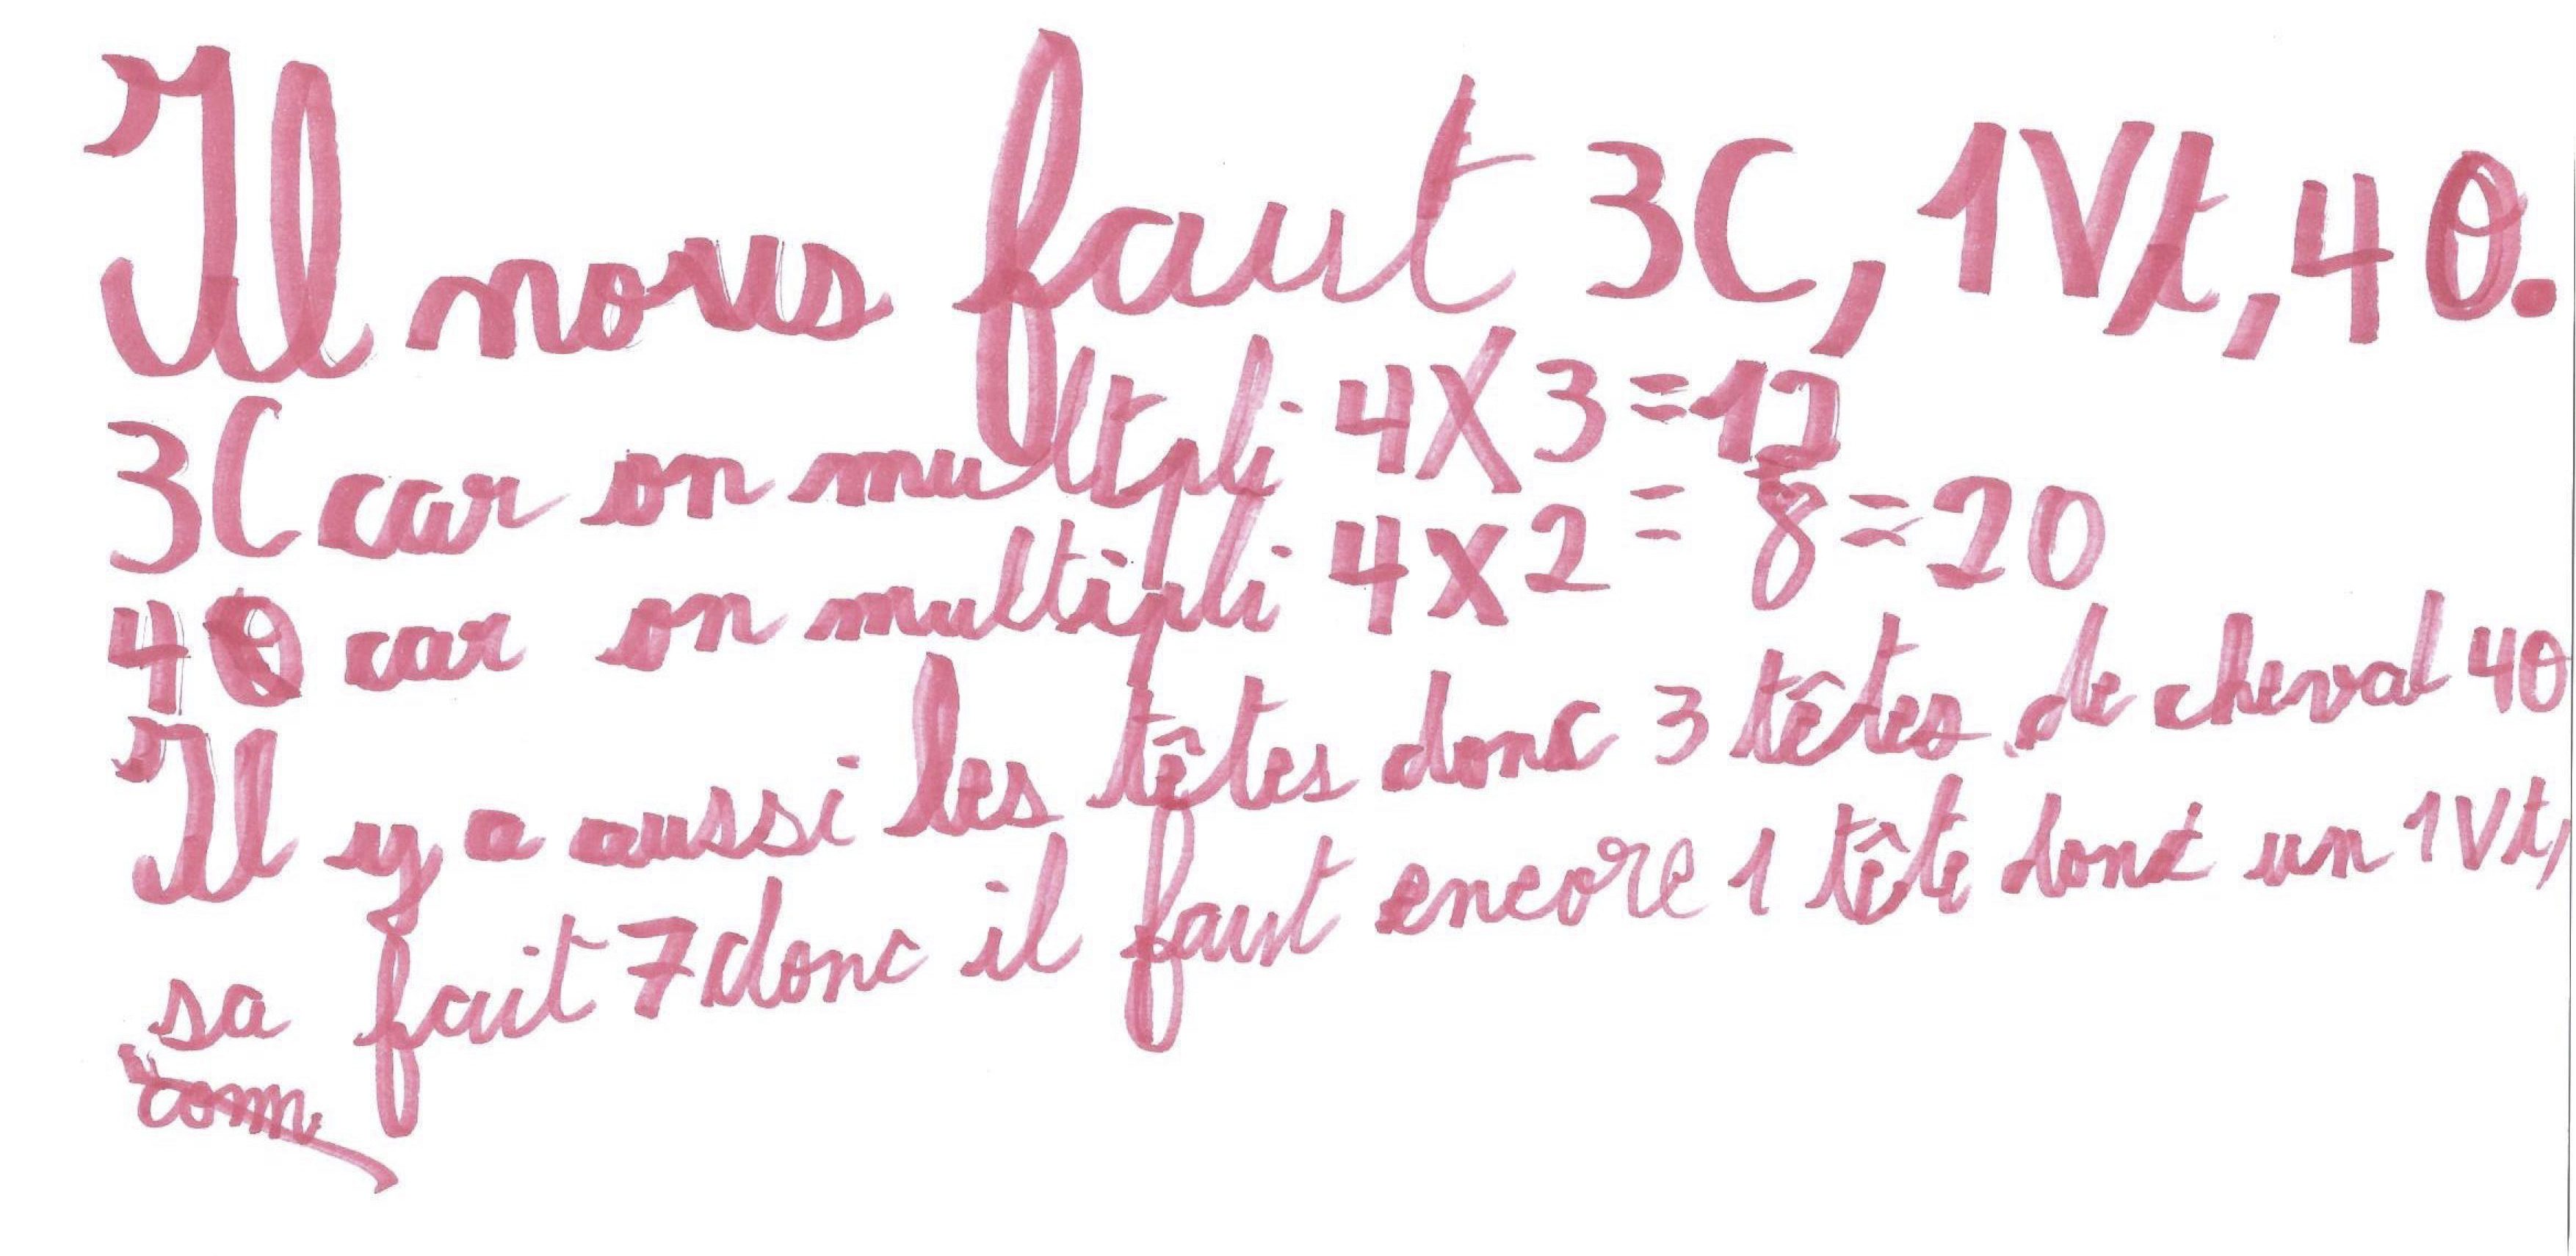 Il nous faut 3C, 1Vt, 4O.
3C car on multipli 4X3=12
4O car on multipli 4x2 = 8 = 20
Il y a aussi les têtes donc 3 têtes de cheval 4O
sa fait 7 donc il faut encore 1 tête donc un 1Vt,
com